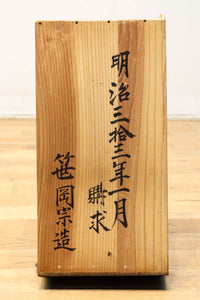 明治三拾三年一月
購求
笹岡宗造